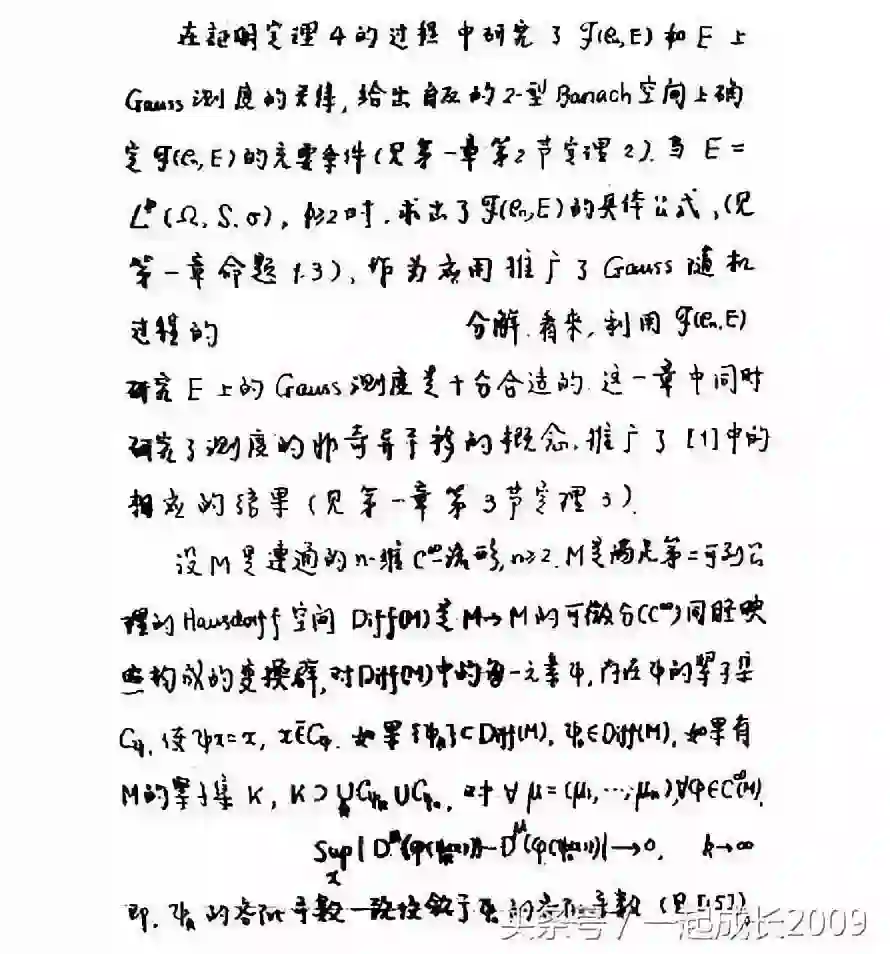 在证明定理4的过程中研究了 𝒯(ℓ₂,E) 和 E 上
Gauss 测度的关系, 给出自反的2-型Banach空间上确
定 𝒯(ℓ₂,E) 的充要条件(见第一章第2节定理2). 当 E =
Lᵖ(Ω, S, σ), p≥2时. 求出了 𝒯(ℓ₂,E) 的具体公式, (见
第一章命题1.3), 作为应用推广了 Gauss 随机
过程的 分解. 看来, 利用 𝒯(ℓ₂,E)
研究 E 上的 Gauss 测度是十分合适的. 这一章中同时
研究了测度的非奇异平移的概念, 推广了 [1] 中的
相应的结果 (见第一章第3节定理3).
设 M 是连通的 n-维 C^∞-流形, n≥2. M是满足第二可列公
理的 Hausdorff 空间 Diff(M) 是 M→M 的可微分(C^∞)同胚映
照构成的变换群, 对Diff(M)中的每一元素ψ, 存在ψ的紧子集
C_ψ, 使 ψx=x, x∉C_ψ. 如果 {ψₖ}⊂Diff(M), ψ₀∈Diff(M), 如果有
M的紧子集 K, K⊃ ∪C_ψₖ ∪C_ψ₀, 对 ∀ μ=(μ₁,…,μₙ), ∀φ∈C^∞(M),
Sup | D^μ(φ( ))-D^μ(φ( ))|→0, k→∞
x
即. ψₖ 的各阶导数一致收敛于ψ₀的各阶导数 (见[15])
头条号 / 一起成长2009